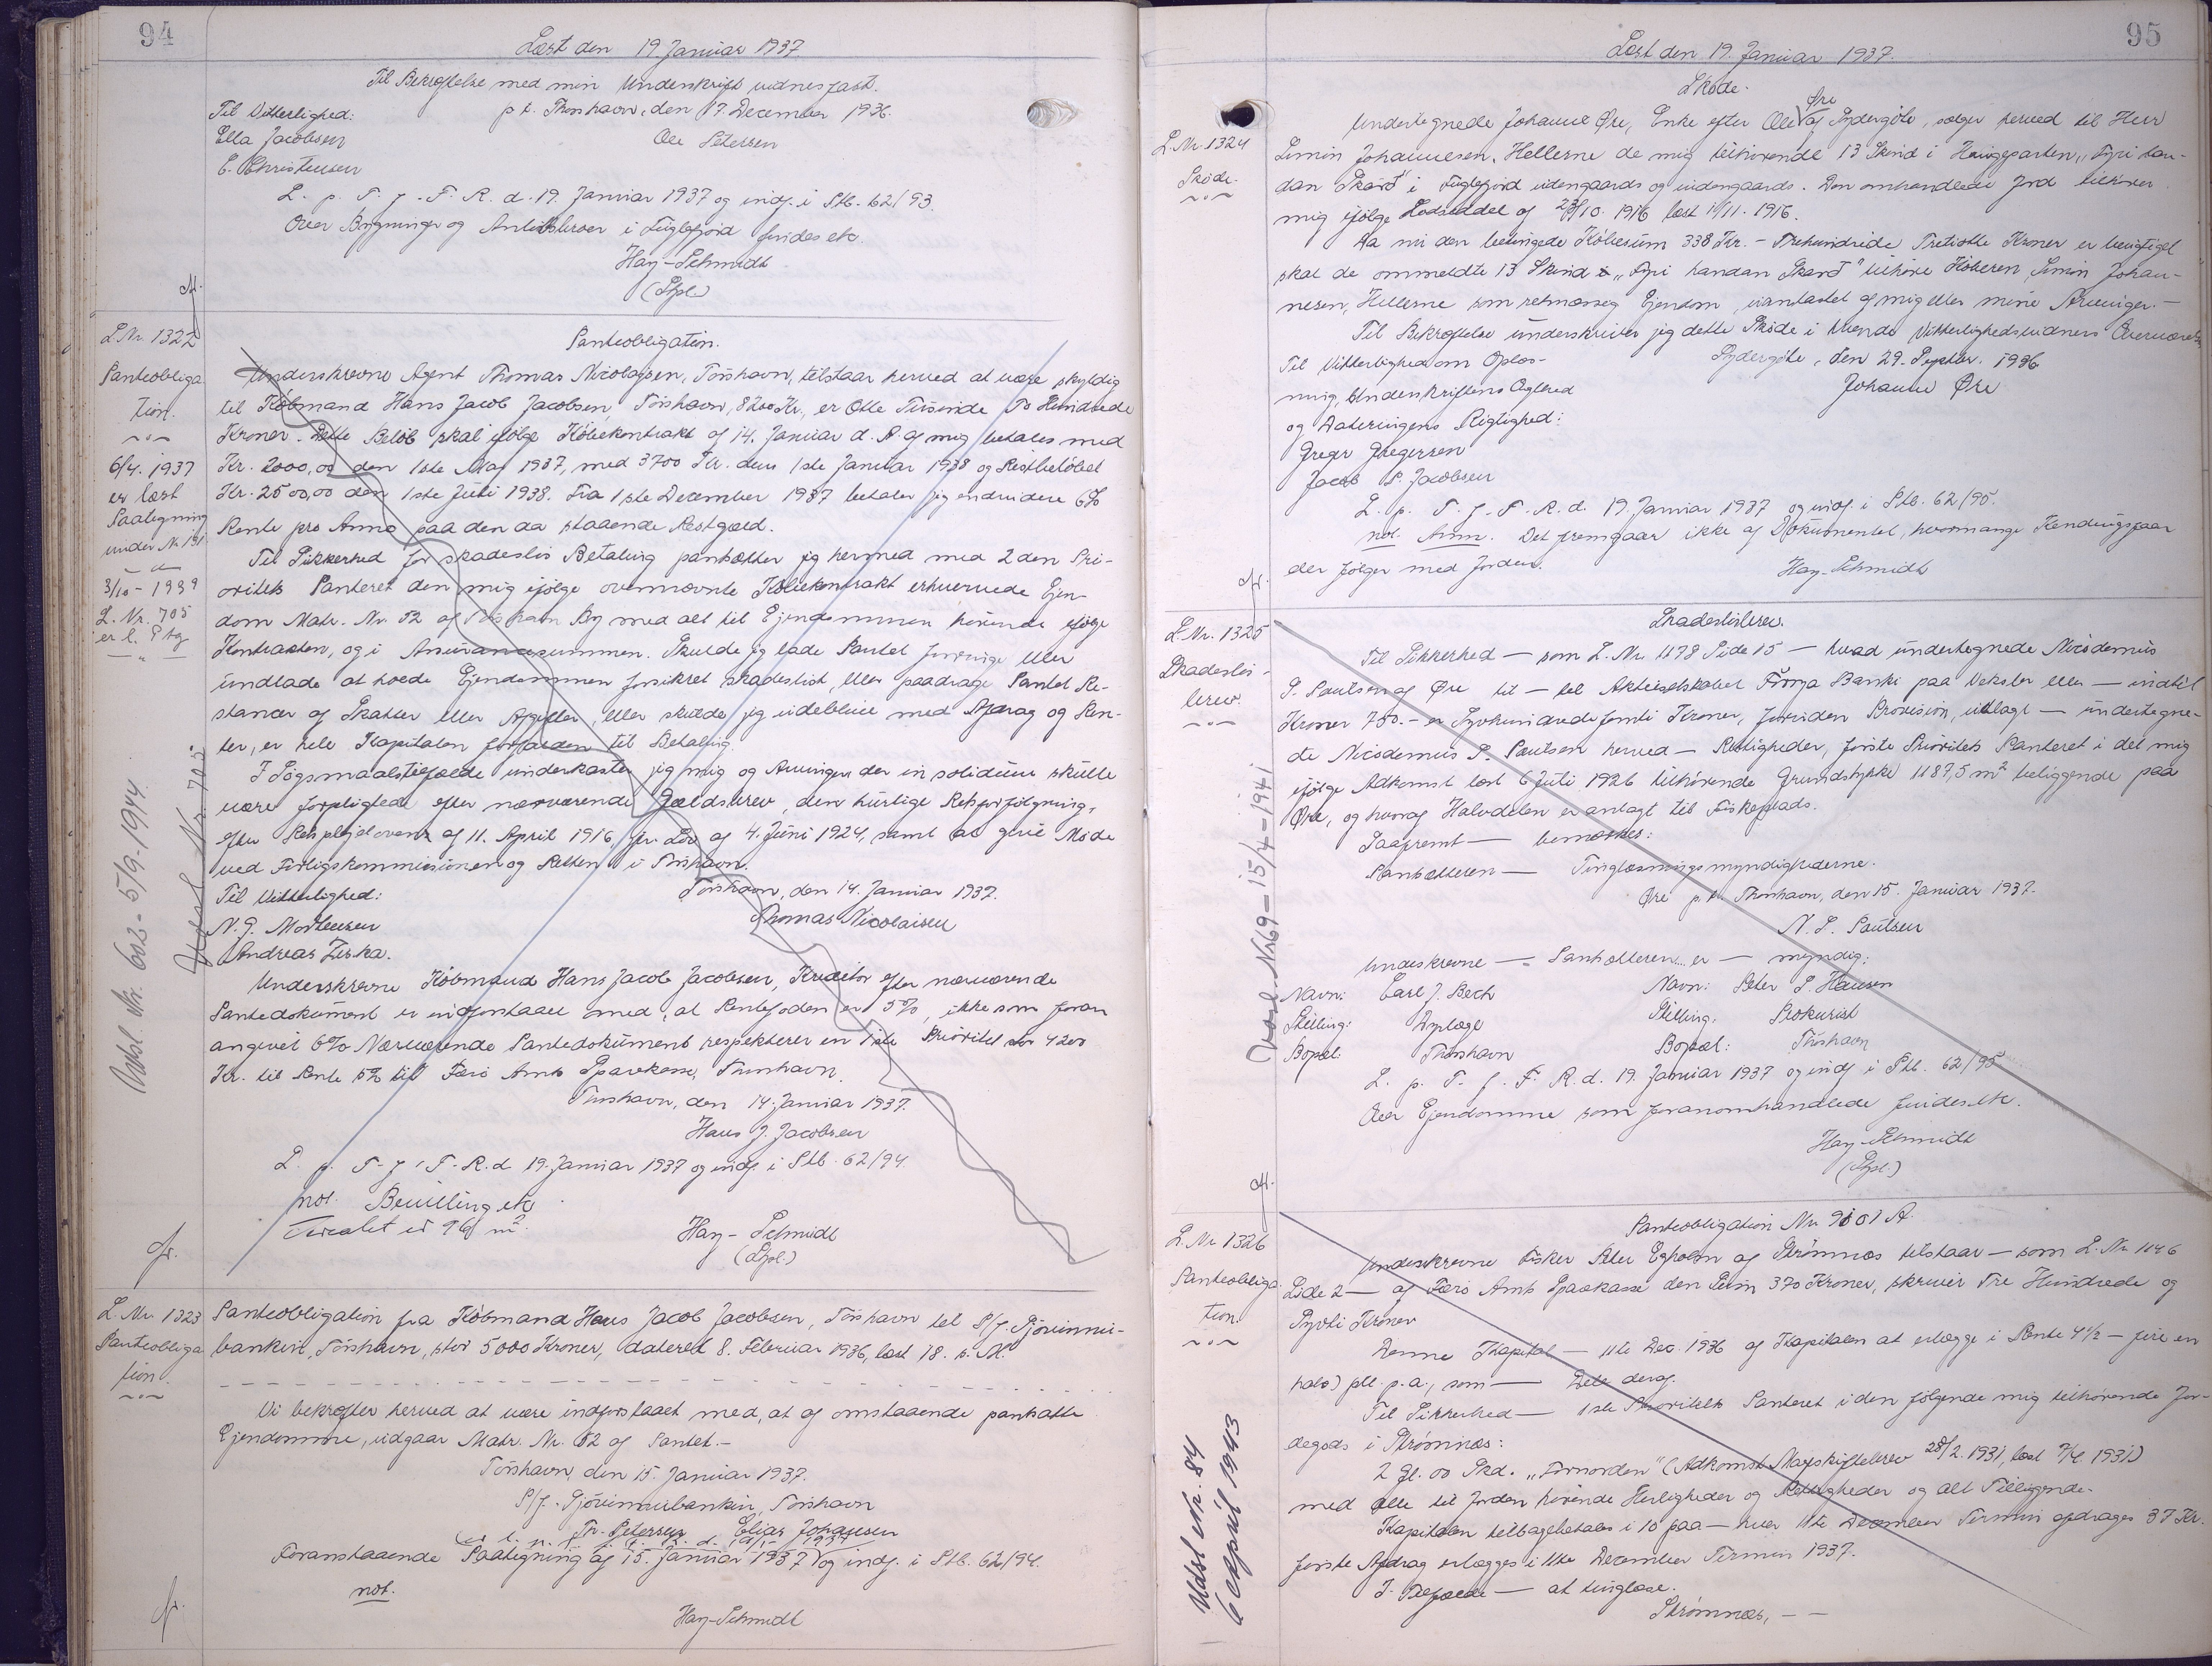 94
Læst den 19. Januar 1937.
Til Bekræftelse med min Underskrift vidnesfast.
Til Vitterlighed: p. t. Thorshavn, den 17. December 1936.
Ella Jacobsen Ole Petersen
E. Christensen
L. p. T. f. F. R. d. 19. Januar 1937 og indf. i Ptb. 62/93.
Over Bygninger og i Fuglefjord findes etc.
Hay-Schmidt
(Spl.)
L. Nr. 1322
Panteobliga
tion.
6/4. 1937
er læst
Paategning
under Nr. 191
3/10 - 1939
L. Nr. 705
er l. Ptg
Udsl. Nr. 602 - 5/9-1944.
Nr. 705.
Panteobligation.
Underskrevne Agent Thomas Nicolajsen, Tórshavn, tilstaar herved at være skyldig
til Købmand Hans Jacob Jacobsen, Tórshavn, 8200 Kr., er Otte Tusinde To Hundrede
Kroner. Dette Beløb skal ifølge Købekontrakt af 14. Januar d. A. af mig betales med
Kr. 2000,00 den 1ste Maj 1937, med 3700 Kr. den 1ste Januar 1938 og Restbeløbet
Kr. 2500,00 den 1ste Juli 1938. Fra 1ste December 1937 betaler jeg endvidere 6%
Rente pro Anno paa den da staaende Restgæld.
Til Sikkerhed for skadesløs Betaling pantsætter jeg hermed med 2den Pri-
oritets Panteret den mig ifølge ovennævnte Købekontrakt erhvervede Ejen-
dom Matr. Nr. 52 af Tórshavn By med alt til Ejendommen hørende ifølge
Kontrakten, og i Assurancesummen. Skulde jeg lade Pantet forringe eller
undlade at holde Ejendommen forsikret skadesløst, eller paadrage Pantet Re-
stancer af Skatter eller Afgifter, eller skulde jeg udeblive med Afdrag og Ren-
ter, er hele Kapitalen forfalden til Betaling.
I Søgsmaalstilfælde underkaster jeg mig og Arvinger der in solidum skulle
være forpligtede efter nærværende Gældsbrev, den hurtige Retsforfølgning,
efter Retsplejeloven af 11. April 1916, jfr. Lov af 4. Juni 1924, samt at give Møde
ved Forligskommissionen og Retten i Tórshavn.
Til Vitterlighed: Tórshavn, den 14. Januar 1937.
N. J. Mortensen Thomas Nicolaisen
Andreas Ziska.
Underskrevne Købmand Hans Jacob Jacobsen, Kreditor efter nærværende
Pantedokument er indforstaaet med, at Rentefoden er 5%, ikke som foran
angivet 6%. Nærværende Pantedokument respekterer en 1ste Prioritet stor 4200
Kr. til Rente 5% til Færø Amts Sparekasse, Thorshavn.
Thorshavn, den 14. Januar 1937.
Hans J. Jacobsen
L. p. T. f. F. R. d. 19. Januar 1937 og indf. i Ptb. 62/94.
not. Bevilling etc
Arealet er 96 m².
Hay-Schmidt
(Spl.)
L. Nr. 1323
Panteobliga
tion.
Panteobligation fra Købmand Hans Jacob Jacobsen, Tórshavn til P/f. Sjóvinnu-
bankin, Tórshavn, stor 5000 Kroner, dateret 8. Februar 1936, læst 18. s. M.
Vi bekræfter herved at være indforstaaet med, at af omstaaende pantsatte
Ejendomme, udgaar Matr. Nr. 52 af Pantet.-
Tórshavn, den 15. Januar 1937.
P/f. Sjóvinnubankin, Tórshavn
Tr. Petersen Elias Johansen
er l. p. T. f. F. R. d. 19/1 1937
Foranstaaende Paategning af 15. Januar 1937 og indf. i Ptb. 62/94.
not.
Hay-Schmidt
95
Læst den 19. Januar 1937.
L. Nr. 1324
Skøde.
Skøde.
Øre
Undertegnede Johanne Øre, Enke efter Ole af Sydergøte, sælger herved til Herr
Simin Johannesen, Hellerne de mig tilhørende 13 Skind i Haugeparten „Fyri han-
dan Skarð" i Fuglefjord udengaards og indengaards. Den omhandlede Jord tilhører
mig ifølge Lodseddel af 28/10. 1916 læst 11/11. 1916.
Da nu den betingede Købesum 338 Kr. - Trehundrede Tretiotte Kroner er berigtiget
skal de ommeldte 13 Skind i „Fyri handan Skarð" tilhøre Køberen, Simin Johan-
nesen, Hellerne som retmæssig Ejendom, uantastet af mig eller mine Arvinger.-
Til Bekræftelse underskriver jeg dette Skøde i tvende Vitterlighedsvidners Overværelse
Til Vitterlighed om Oplæs- Sydergøte, den 29. Septbr. 1936
ning, Underskriftens Ægthed Johanne Øre
og Dateringens Rigtighed:
Greger Joegersen
Jacob P. Jacobsen
L. p. T. f. F. R. d. 19. Januar 1937 og indf. i Ptb. 62/95.
not. Anm. Det fremgaar ikke af Dokumentet, hvormange Kendingsfaar
der følger med Jorden. Hay-Schmidt
L. Nr. 1325
Skadesløs-
brev.
Udsl. Nr. 69 - 15/4 - 1941
Skadesløsbrev.
Til Sikkerhed — som L. Nr. 1178 Side 15 — hvad undertegnede Nicodemus
P. Poulsen af Øre til — tel Aktieselskabet Føroya Banki paa Veksler eller — indtil
Kroner 750.- er Syvhundredefemti Kroner, foruden Provision, udlagt — undertegne-
de Nicodemus P. Poulsen herved — Rettigheder, første Prioritets Panteret i det mig
ifølge Adkomst læst 6 Juli 1926 tilhørende Grundstykke 1187,5 m² beliggende paa
Øre, og hvoraf Halvdelen er anlagt til Fiskeplads.
Saafremt — bemærkes:
Pantsætteren — Tinglæsningsmyndighederne.
Øre p. t. Thorshavn, den 15. Januar 1937.
N. P. Poulsen
Underskrevne — Pantsætteren er — myndig:
Navn: Carl J. Bech Navn: Peter P. Hansen
Stilling: Dyrlæge Stilling: Prokurist
Bopæl: Thorshavn Bopæl: Thorshavn
L. p. T. f. F. R. d. 19. Januar 1937 og indf i Ptb. 62/95
Over Ejendomme som foranomhandlede findes etc.
Hay-Schmidt
(Spl.)
L. Nr. 1326
Panteobliga
tion.
Udsl Nr. 84
6 April 1943
Panteobligation Nr. 9801 A.
Underskrevne Fisker Peter Egholm af Strømnæs tilstaar — som L. Nr. 1146
Side 2 — af Færø Amts Sparekasse den Sum 370 Kroner, skriver Tre Hundrede og
Syvti Kroner
Denne Kapital — 11te Dec. 1936 af Kapitalen at erlægge i Rente 4½ — fire en
halv) pCt. p. a., som — Dele deraf.
Til Sikkerhed — 1ste Prioritets Panteret i den følgende mig tilhørende Jor-
degods i Strømnæs:
2 Gl. 00 Skd. „Fornorden" (Adkomst Mageskiftebrev 28/2. 1931, læst 7/4. 1931)
med alle til Jorden hørende Herligheder og Rettigheder og alt Tilliggende.
Kapitalen tilbagebetales i 10 paa — hver 11te December Termin afdrages 37 Kr.
første Afdrag erlægges i 11te December Termin 1937.
I Tilfælde — at tinglæse.
Strømnæs, — —